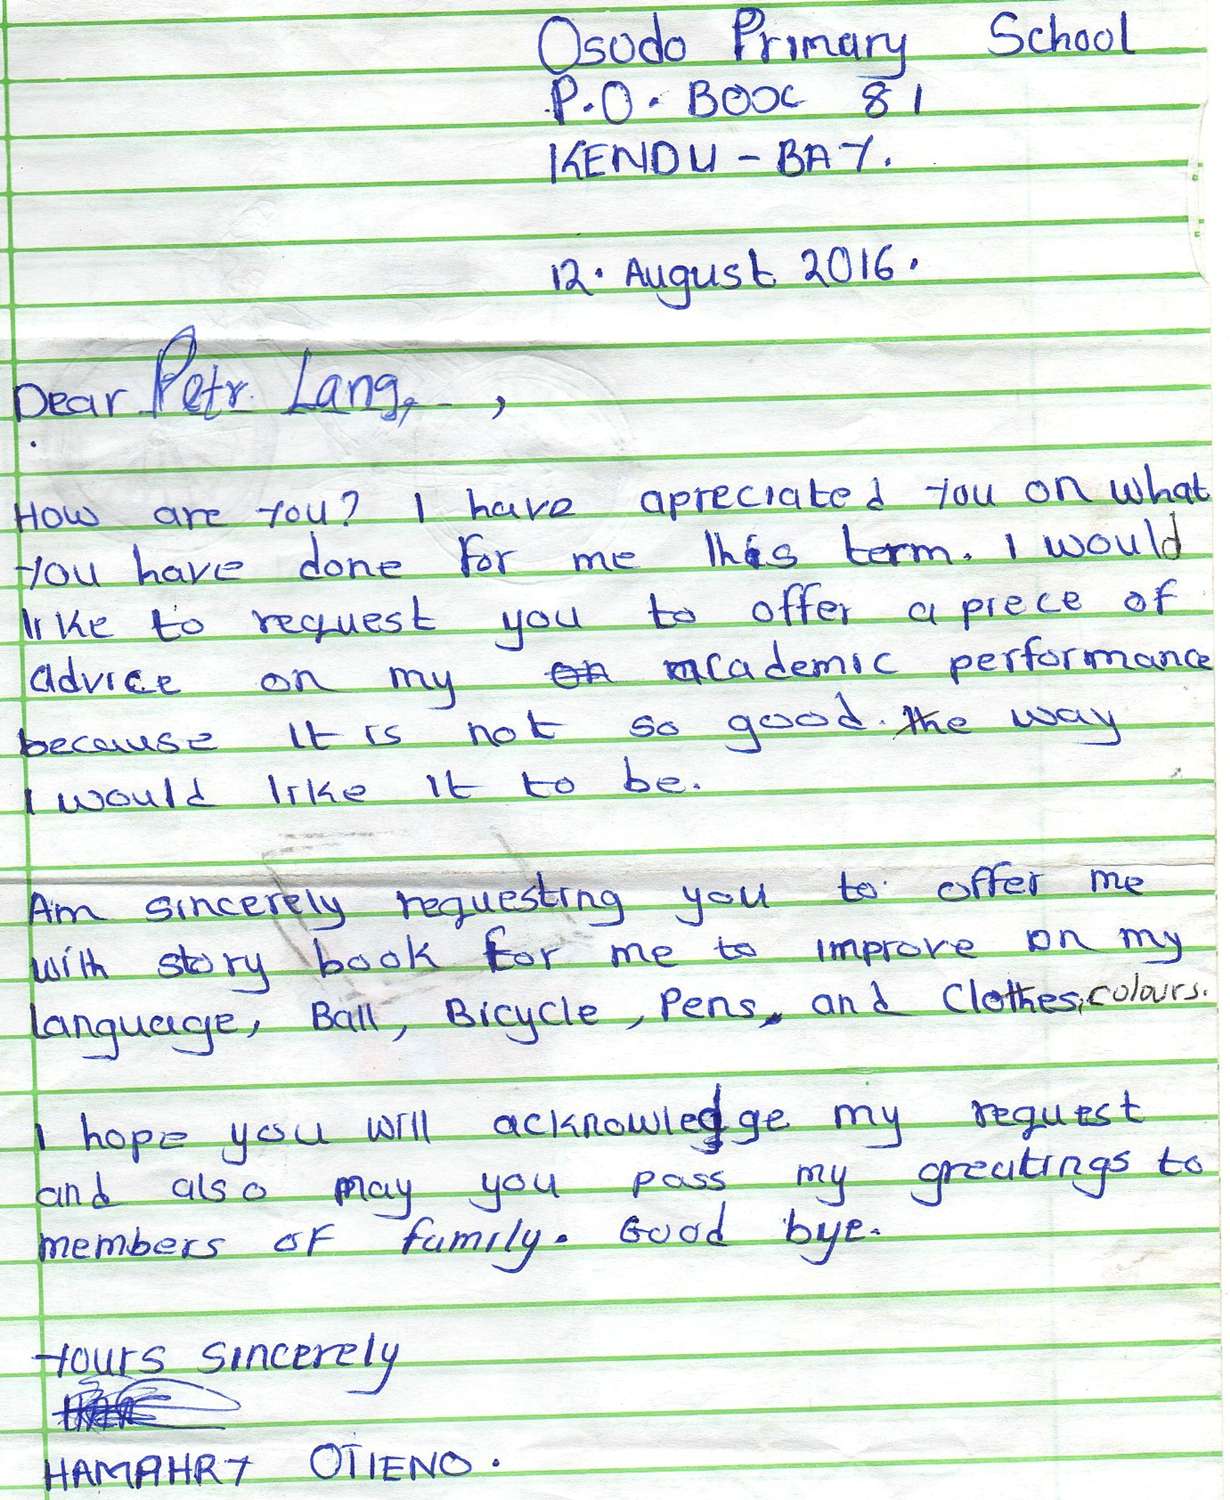 Osudo Primary School
P.O. BOOX 81
KENDU - BAY.
12. August 2016.
Dear Petr Lang, ,
How are you? I have apreciated you on what
you have done for me this term. I would
like to request you to offer a piece of
advice on my on academic performance
because it is not so good. the way
I would like it to be.
Am sincerely requesting you to offer me
with story book for me to improve on my
language, Ball, Bicycle, Pens, and Clothes, colours.
I hope you will acknowledge my request
and also may you pass my greatings to
members of family. Good bye.
Yours sincerely
HAMPHRY OTIENO.